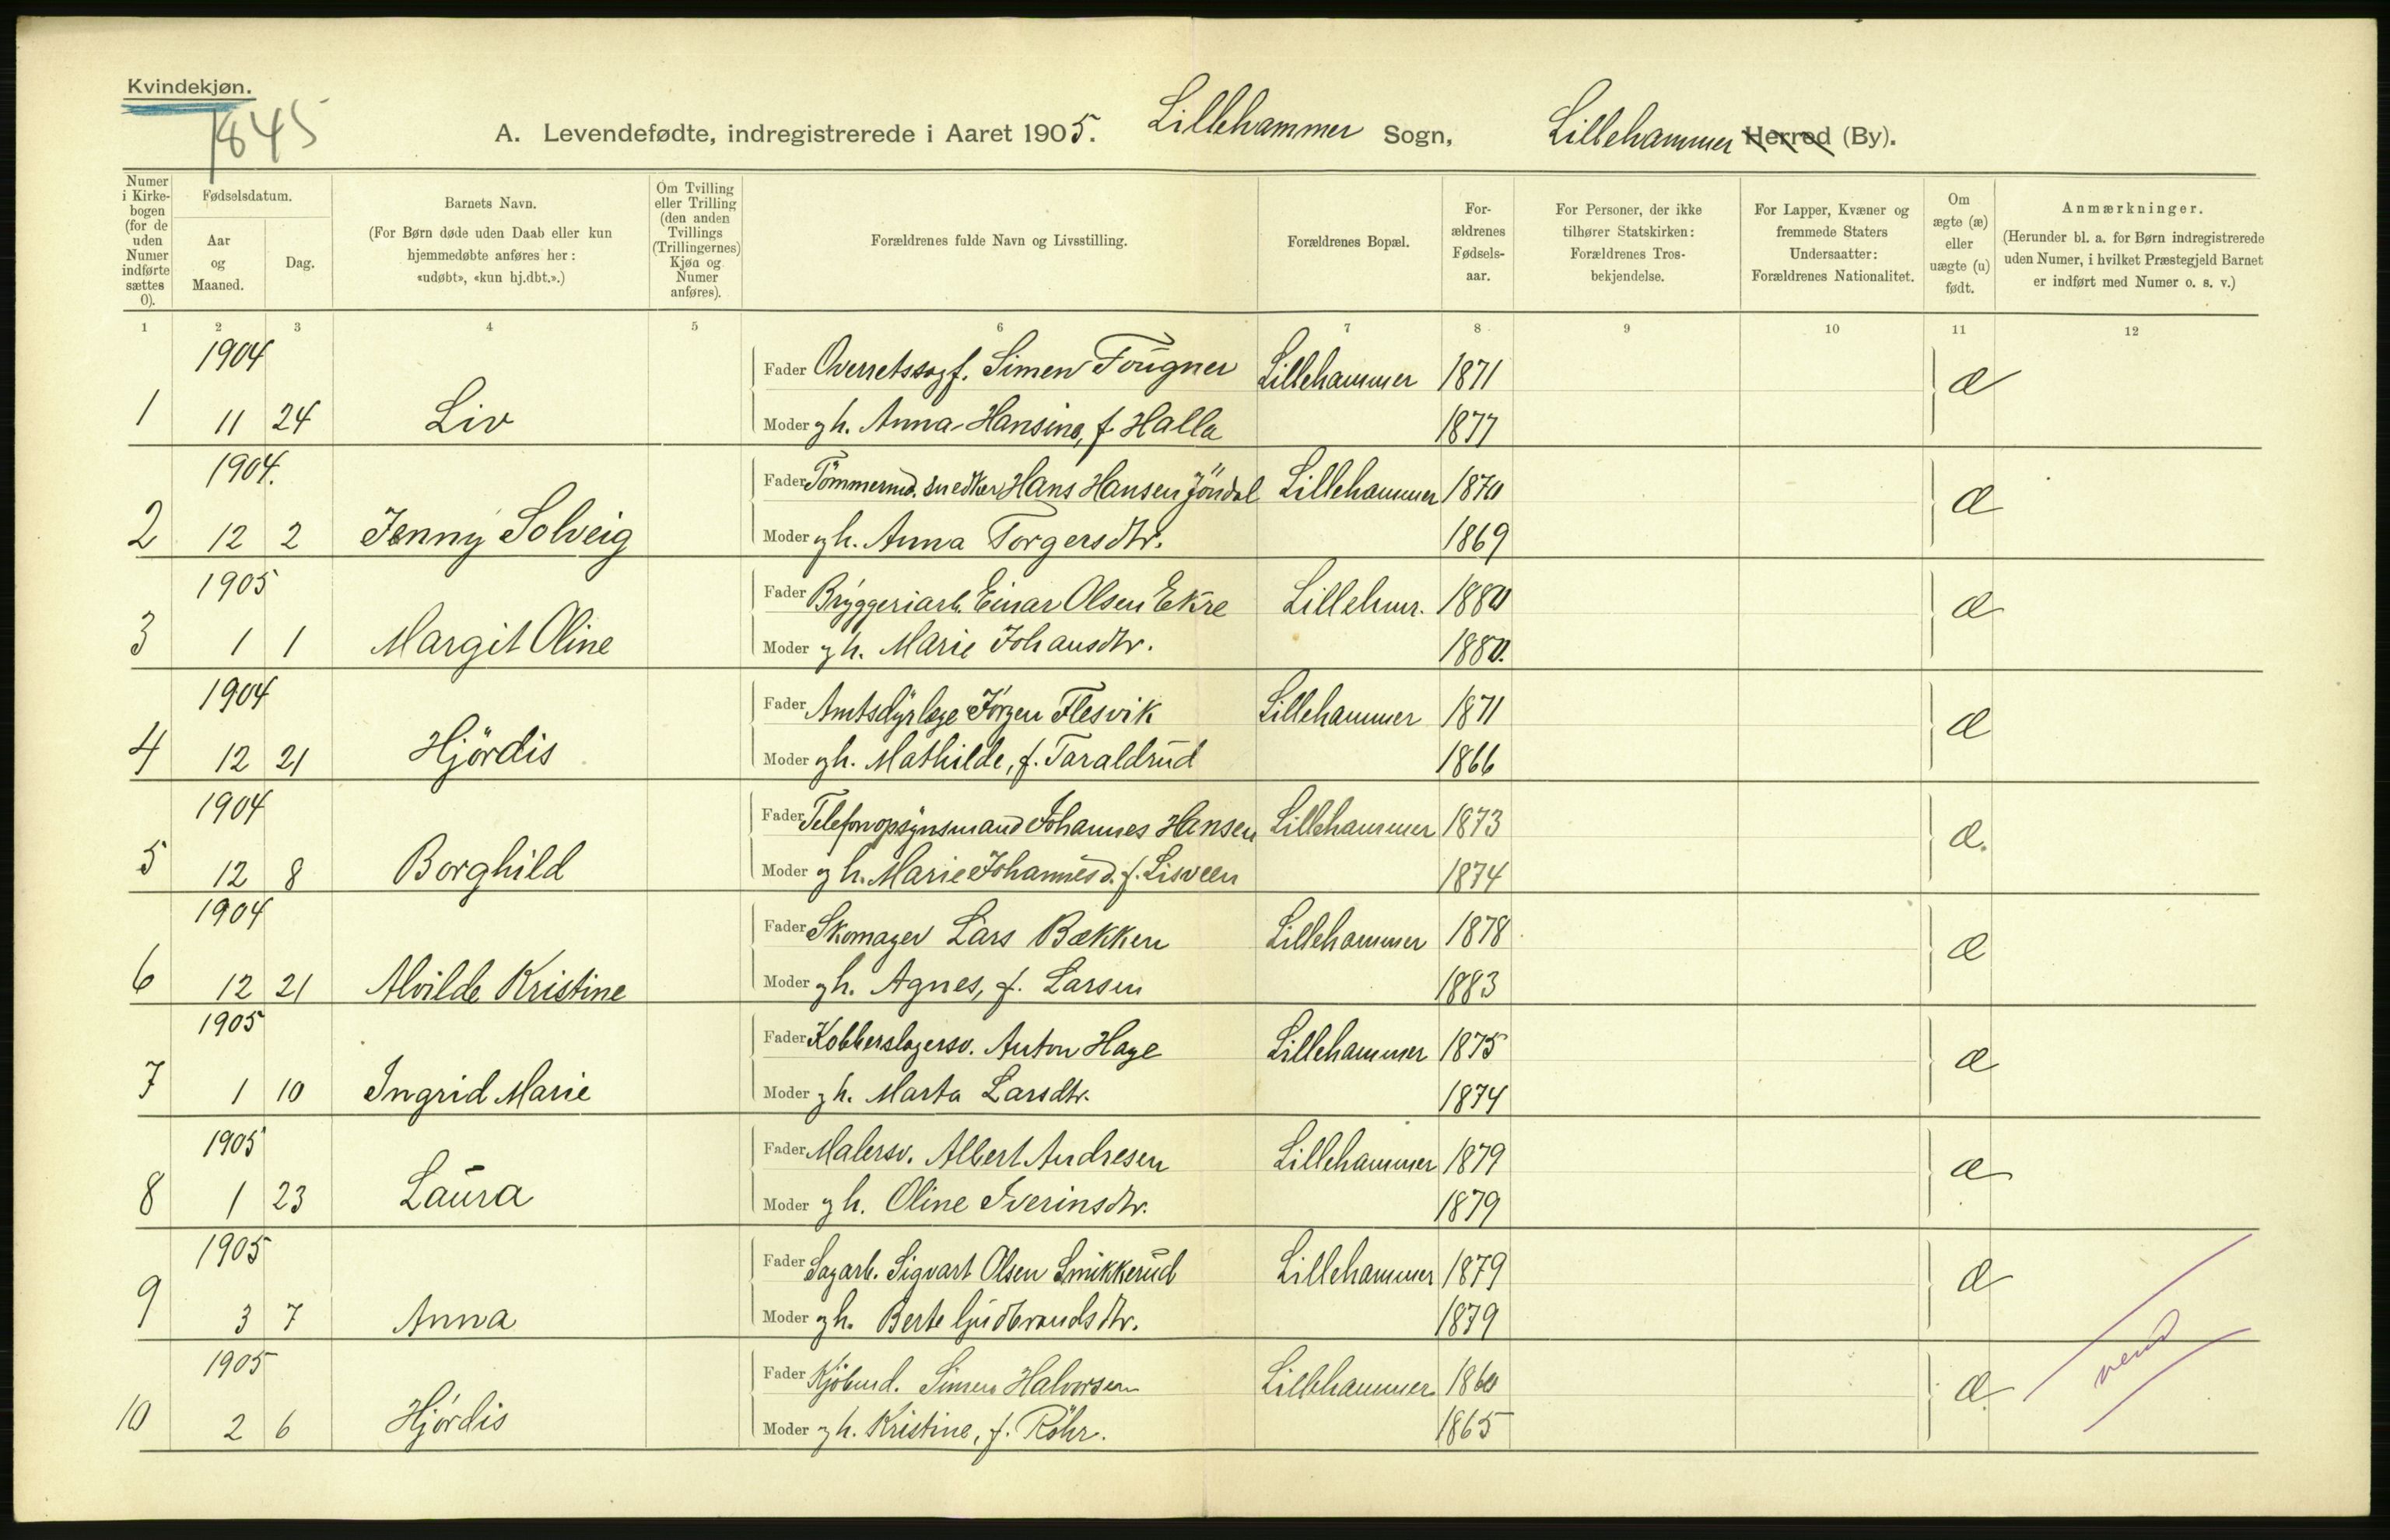 Kvindekjøn.
1845
A. Levendefødte, indregistrerede i Aaret 1905. Lillehammer Sogn, Lillehammer Herred (By).
Numer i Kirke-bogen (for de uden Numer indførte sættes 0).
Fødselsdatum.
Aar og Maaned.
Dag.
Barnets Navn.
(For Børn døde uden Daab eller kun hjemmedøbte anføres her: «udøbt», «kun hj.dbt.».)
Om Tvilling eller Trilling (den anden Tvillings (Trillingernes) Kjøn og Numer anføres).
Forældrenes fulde Navn og Livsstilling.
Forældrenes Bopæl.
For-ældrenes Fødsels-aar.
For Personer, der ikke tilhører Statskirken: Forældrenes Tros-bekjendelse.
For Lapper, Kvæner og fremmede Staters Undersaatter: Forældrenes Nationalitet.
Om ægte (æ) eller uægte (u) født.
Anmærkninger.
(Herunder bl. a. for Børn indregistrerede uden Numer, i hvilket Præstegjeld Barnet er indført med Numer o. s. v.)
1 2 3 4 5 6 7 8 9 10 11 12
1904 Fader Overretssagf. Simen Fougner Lillehammer 1871 æ
1 11 24 Liv Moder gh. Anna Hansine, f. Halla 1877
1904. Fader Tömmermd. snedker Hans Hansen Jöndal Lillehammer 1870 æ
2 12 2 Jenny Solveig Moder gh. Anna Torgersdtr. 1869
1905 Fader Bryggeriarb. Einar Olsen Ekre Lillehmr. 1880 æ
3 1 1 Margit Oline Moder gh. Marie Johansdtr. 1880.
1904 Fader Amtsdyrlæge Jörgen Flesvik Lillehammer 1871 æ
4 12 21 Hjördis Moder gh. Mathilde, f. Taraldrud 1866
1904 Fader Telefonopsynsmand Johannes Hansen Lillehammer 1873 æ.
5 12 8 Borghild Moder gh. Marie Johannesd. f. Lisveen 1874
1904 Fader Skomager Lars Bækken Lillehammer 1878 æ
6 12 21 Alvilde Kristine Moder gh. Agnes, f. Larsen 1883
1905 Fader Kobberslagersv. Anton Hage Lillehammer 1875 æ
7 1 10 Ingrid Marie Moder gh. Marta Larsdtr. 1874
1905 Fader Malersv. Albert Andresen Lillehammer 1879 æ
8 1 23 Laura Moder gh. Oline Iverinsdtr. 1879
1905 Fader Sagarb. Sigvart Olsen Smikkerud Lillehammer 1879 æ
9 3 7 Anna Moder gh. Berte Gudbrandsdtr. 1879
1905 Fader Kjöbmd. Simen Halvorsen Lillehammer 1860 æ.
10 2 6 Hjördis Moder gh. Kristine, f. Röhr. 1865
vend